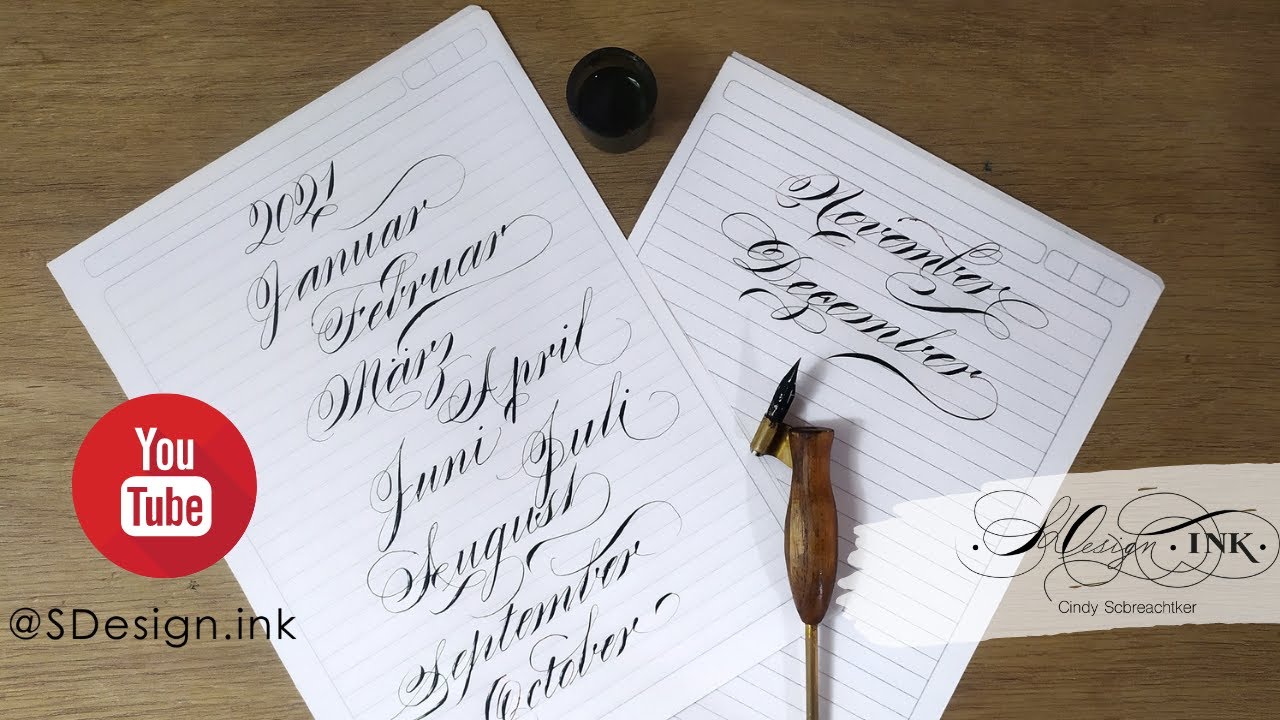 2021
Januar
Februar
März
April
Juni
Juli
August
September
October
November
Dezember
You
Tube
@SDesign.ink
· SDesign · INK ·
Cindy Scbreachtker